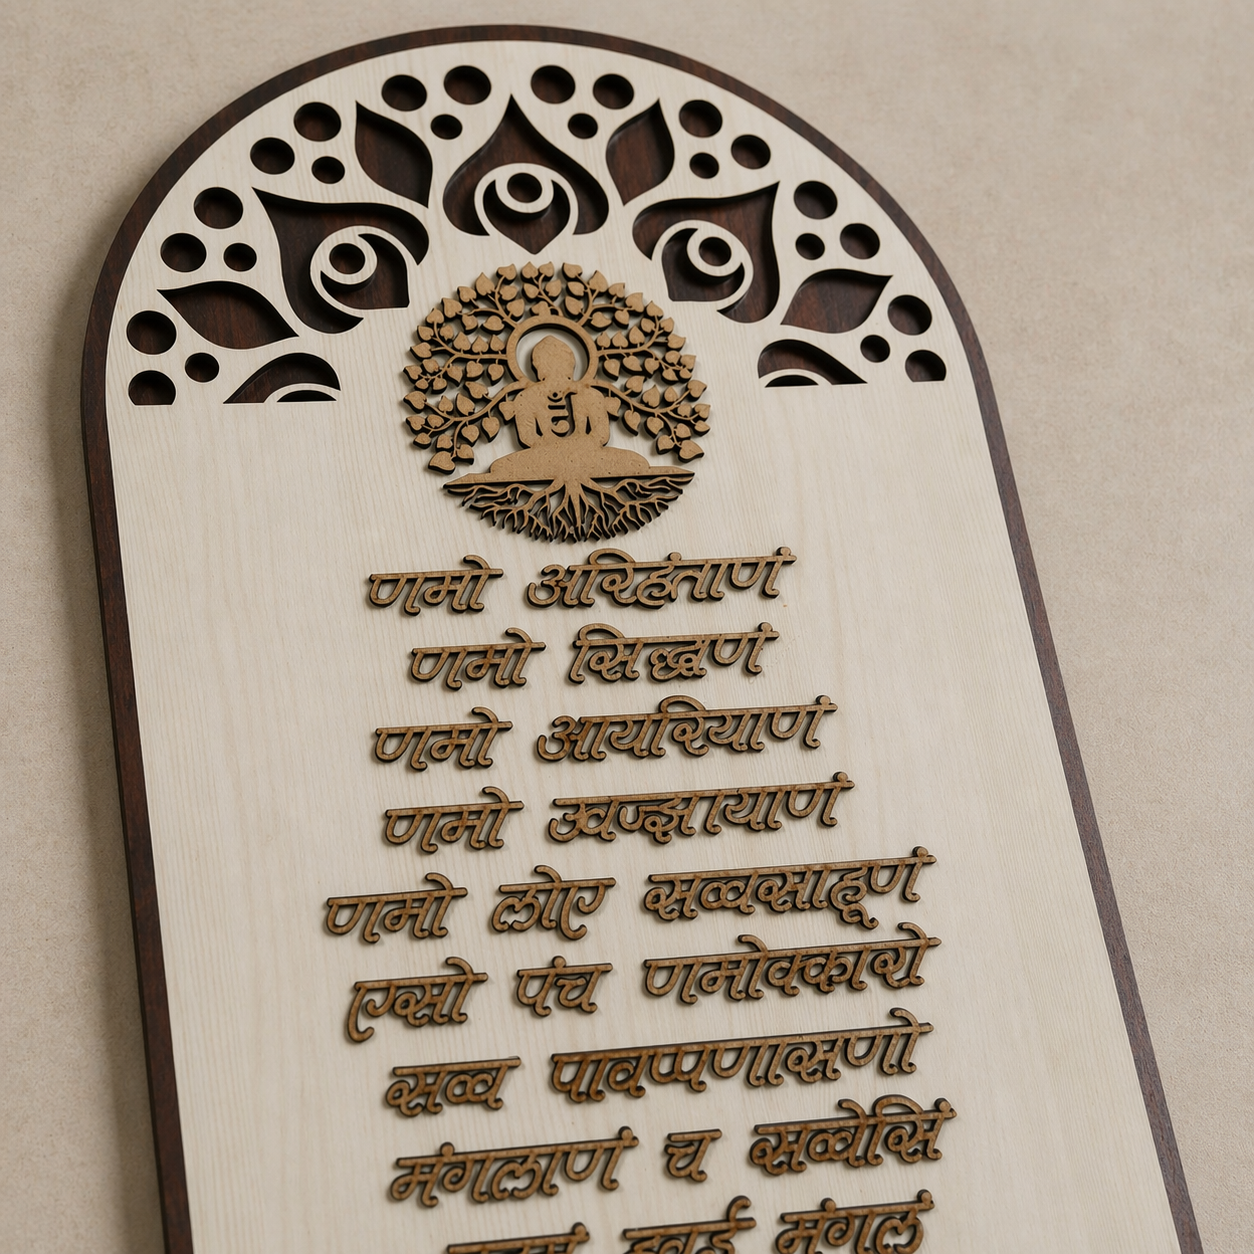 णमो अरिहंताणं
णमो
णमो आयरियाणं
णमो उवज्झायाणं
णमो लोए सव्वसाहूणं
एसो पंच णमोक्कारो
सव्व पावप्पणासणो
मंगलाणं च सव्वेसिं
हवई मंगलं